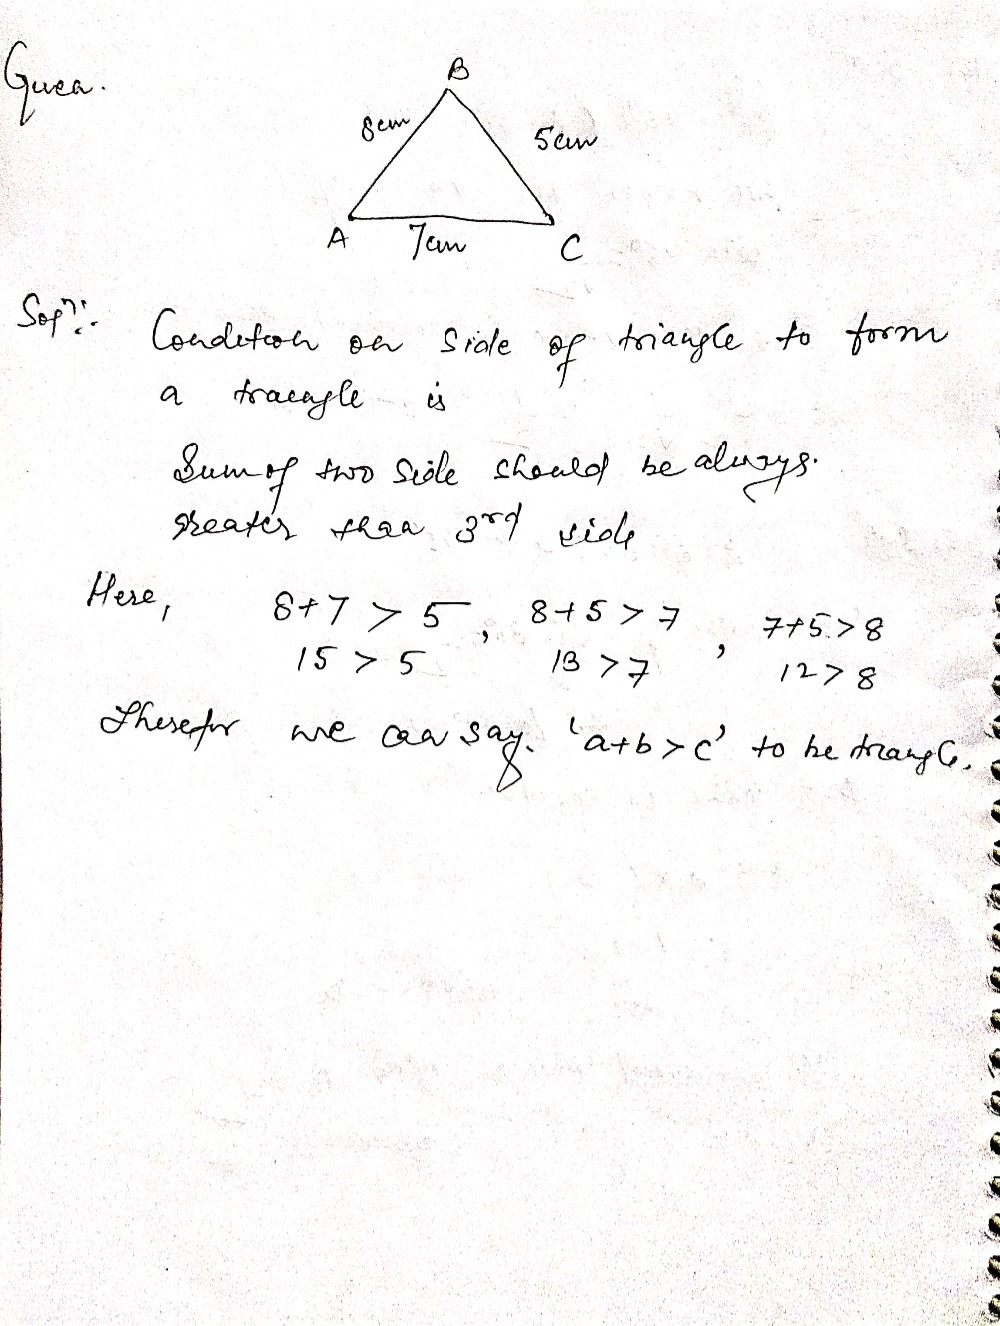 Given.
B
8cm
5cm
A
7cm
C
Solⁿ:-
Condition on side of triangle to form
a traingle is
Sum of two side should be always.
greater than 3rd side
Here, 8+7 > 5, 8+5 > 7, 7+5 > 8
15 > 5 13 > 7 12 > 8
Therefor we can say. 'a+b>c' to be triangle.